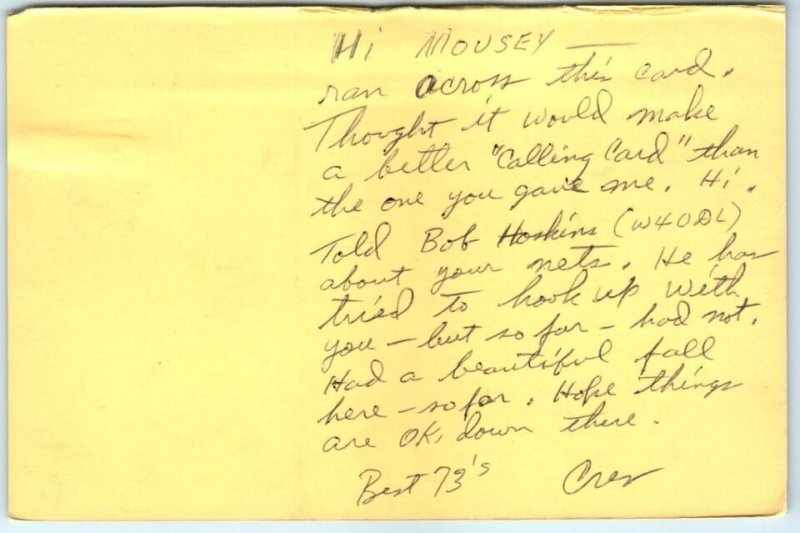 Hi MOUSEY —
ran across this card.
Thought it would make
a better "Calling Card" than
the one you gave me. Hi.
Told Bob Hoskins (W4ODL)
about your nets. He has
tried to hook up with
you – but so far – had not.
Had a beautiful fall
here – so far. Hope things
are OK, down there.
Best 73's Cres